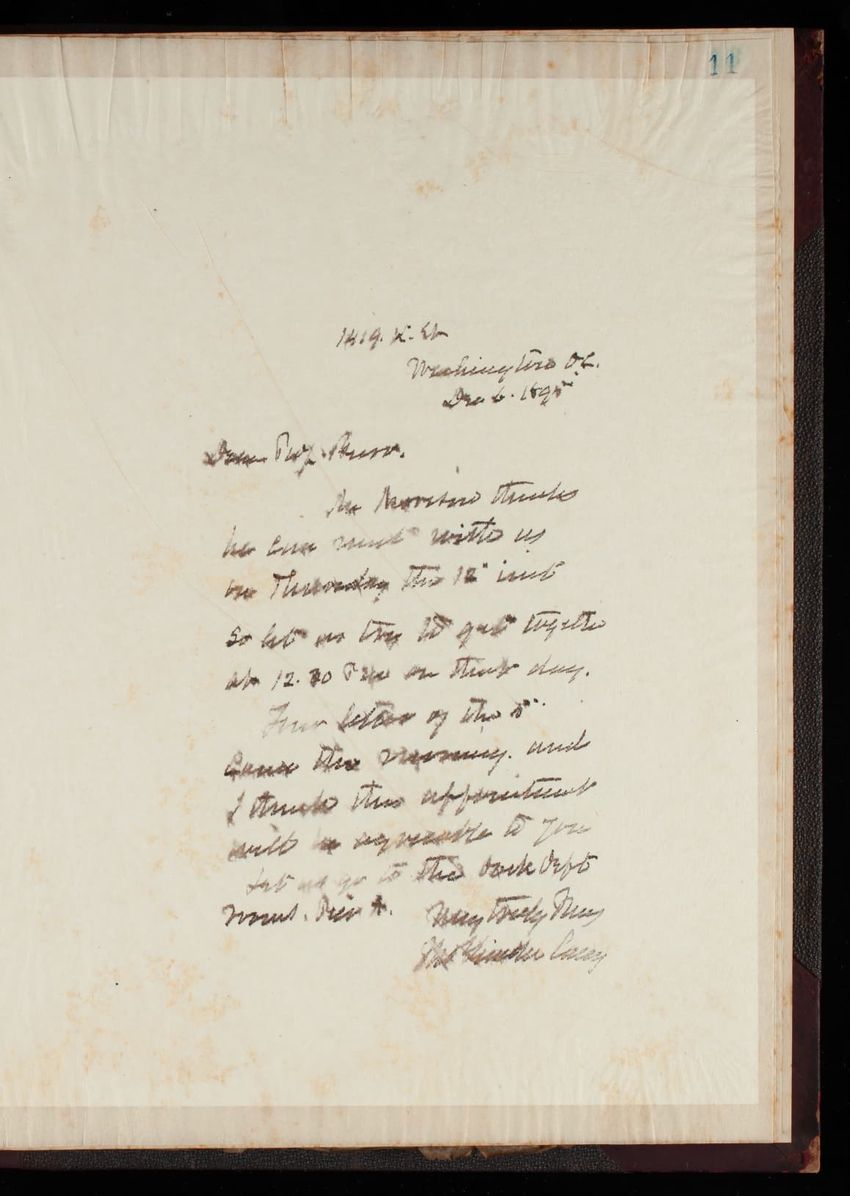 11
1419. K. St
Washington D.C.
Dec 6. 1895
Dear Prof. Burr.
Mr Morison thinks
he can meet with us
on Thursday the 12" inst
So let us try to get together
at 12.30 P.M. on that day.
Your letter of the 5"
Came this morning. and
I think this appointment
will be agreeable to you
Let us go to the Dock Dept
rooms. Pier A. Very truly Yours
Thos Lincoln Casey